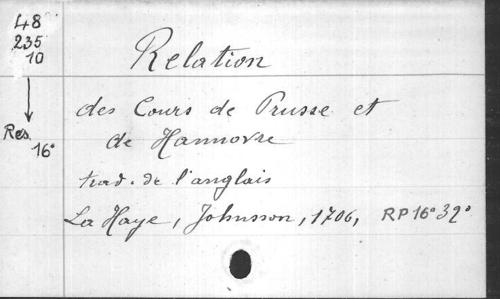 48
235
10
Res.
16°
Relation
des Cours de Prusse et
de Hannovre
trad. de l'anglais
La Haye, Johnsson, 1706, RP 16° 32°